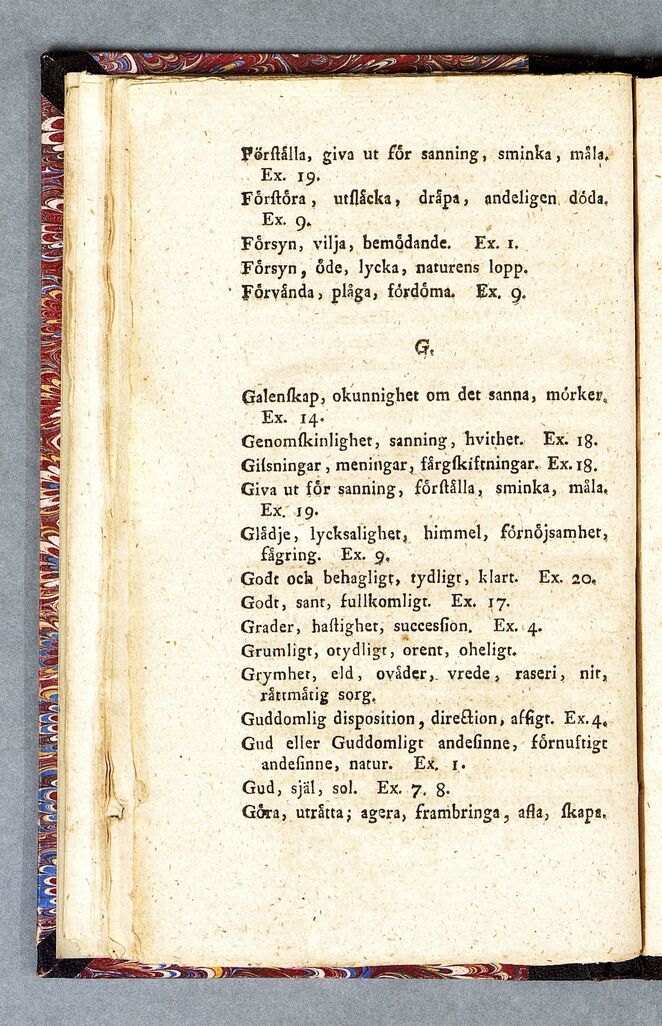 Förſtålla, giva ut för sanning, sminka, måla.
Ex. 19.
Förſtöra, utſlåcka, dråpa, andeligen döda.
Ex. 9.
Försyn, vilja, bemödande. Ex. 1.
Försyn, öde, lycka, naturens lopp.
Förvånda, plåga, fördöma. Ex. 9.
G.
Galenſkap, okunnighet om det sanna, mörker.
Ex. 14.
Genomſkinlighet, sanning, hvithet. Ex. 18.
Giſsningar, meningar, fårgſkiftningar. Ex. 18.
Giva ut för sanning, förſtålla, sminka, måla.
Ex. 19.
Glådje, lycksalighet, himmel, förnöjsamhet,
fågring. Ex. 9.
Godt och behagligt, tydligt, klart. Ex. 20.
Godt, sant, fullkomligt. Ex. 17.
Grader, haſtighet, succesſion. Ex. 4.
Grumligt, otydligt, orent, oheligt.
Grymhet, eld, ovåder, vrede, raseri, nit,
råttmåtig sorg.
Guddomlig disposition, direction, affigt. Ex. 4.
Gud eller Guddomligt andeſinne, förnuftigt
andeſinne, natur. Ex. 1.
Gud, själ, sol. Ex. 7. 8.
Göra, utråtta; agera, frambringa, afla, ſkapa.